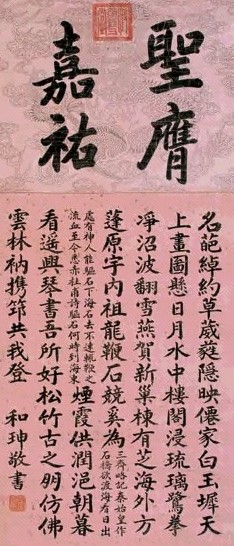 聖膺
嘉祐
名葩綽約草葳蕤隱映僊家白玉墀天
上畫圖懸日月水中樓閣浸琉璃鷺拳
凈沼波翻雪燕賀新巢棟有芝海外方
蓬原宇内祖龍鞭石競奚為三齊略記秦始皇作石橋欲渡海看日出
處有神人能驅石下海石去不速輒鞭之流血至今悉赤杜甫詩驅石何時到海東煙霞供潤浥朝暮
看遥興琴書吾所好松竹古之明仿佛
雲林衲携筇共我登
和珅敬書